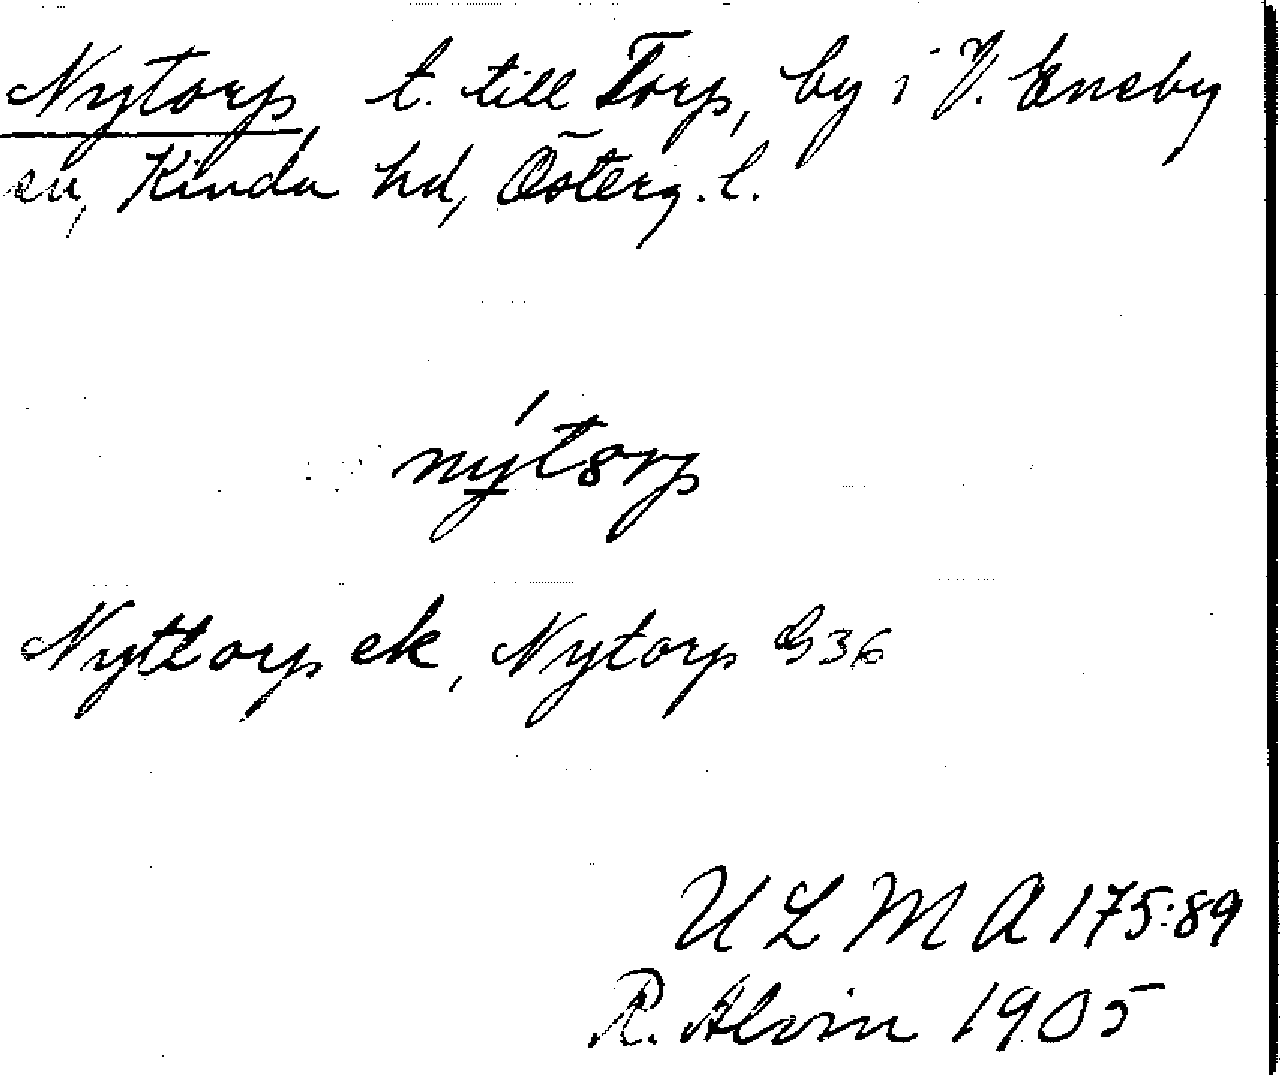 Nytorp t. till Torp, by i V. Eneby
sn, Kinda hd, Österg. l.
nýtorp
Nyttorp ek, Nytorp G36
ULMA 175:89
R. Alvin 1905